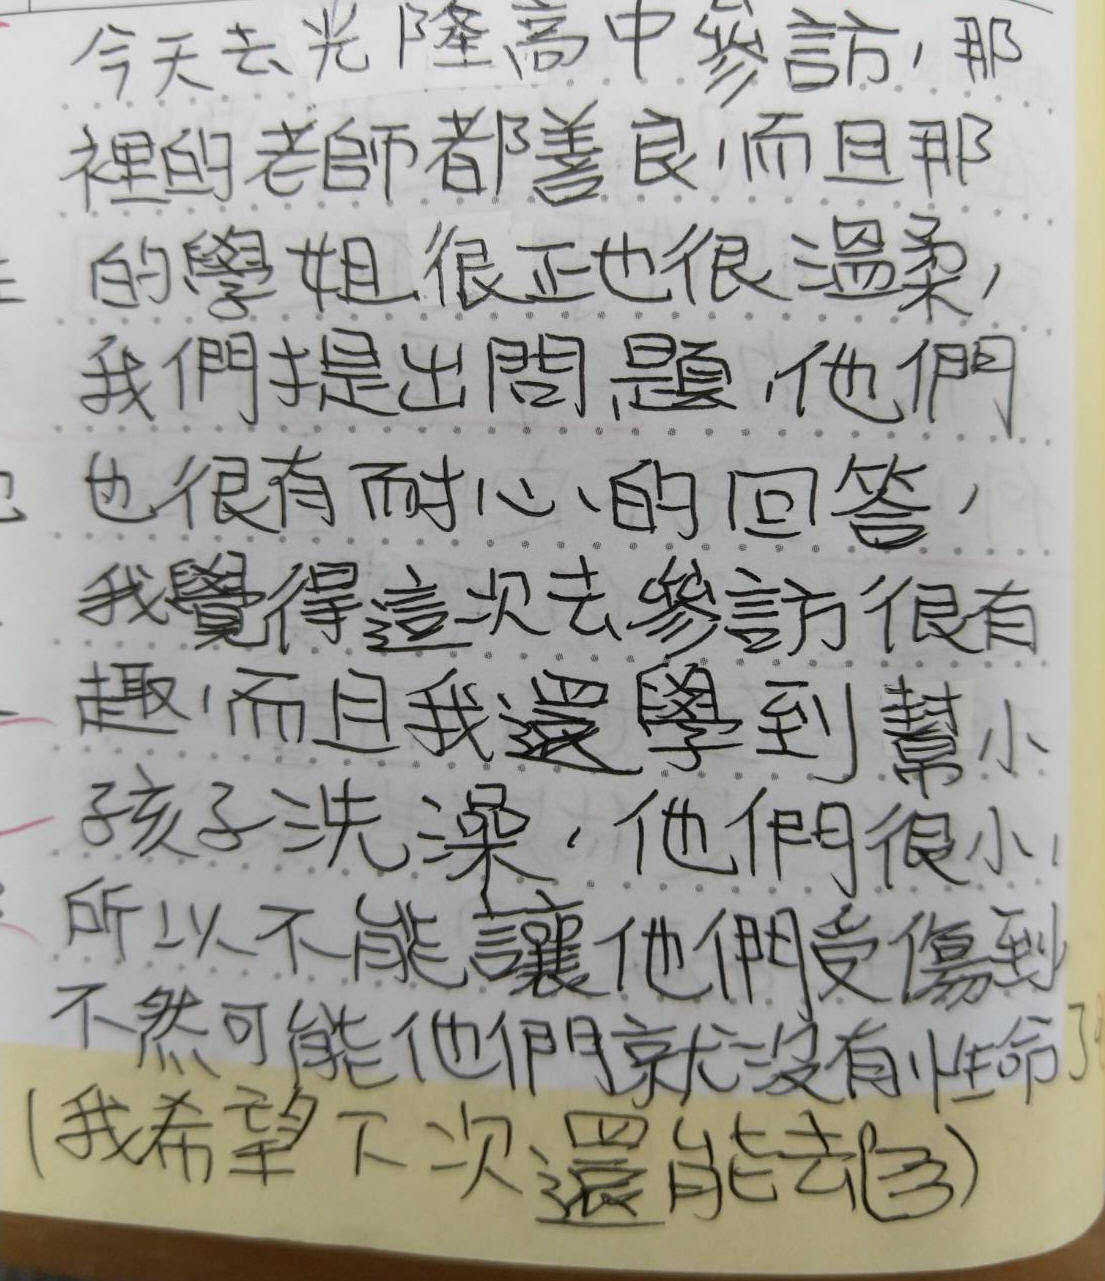 今天去光隆高中參訪，那
裡的老師都善良，而且那
的學姐很正也很溫柔，
我們提出問題，他們
也很有耐心的回答，
我覺得這次去參訪很有
趣，而且我還學到幫小
孩子洗澡，他們很小，
所以不能讓他們受傷到
不然可能他們就沒有性命了
(我希望下次還能去)